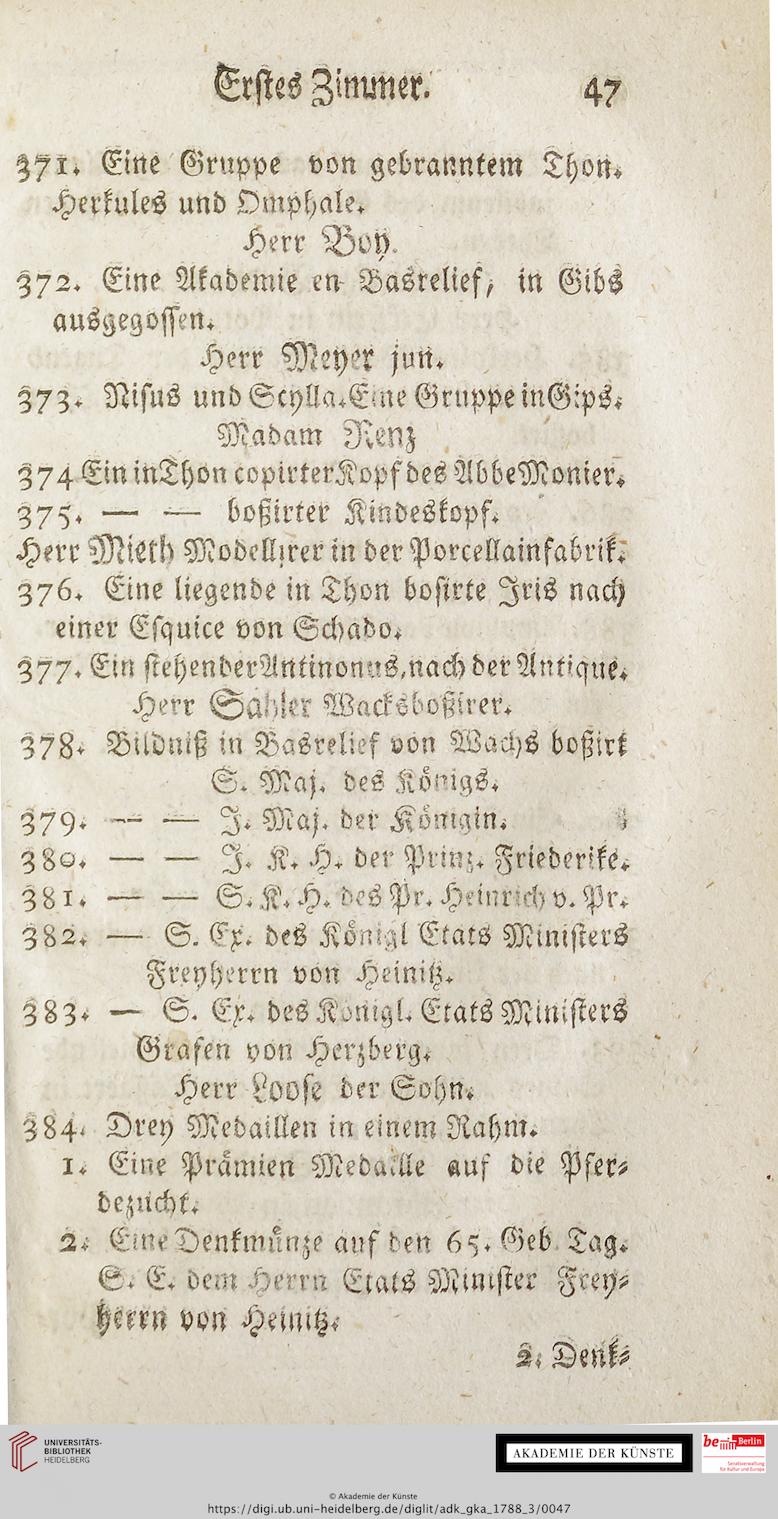 Erstes Zimmer. 47
371. Eine Gruppe von gebranntem Thon.
Herkules und Omphale.
Herr Boy.
372. Eine Akademie en Basrelief, in Gibs
ausgegossen.
Herr Meyer jun.
373. Nisus und Scylla. Eine Gruppe in Gips.
Madam Renz
374 Ein in Thon copirter Kopf des Abbe Monier.
375. — — boßirter Kindeskopf.
Herr Mieth Modellirer in der Porcellainfabrik.
376. Eine liegende in Thon bosirte Iris nach
einer Esquice von Schado.
377. Ein stehender Antinonus, nach der Antique.
Herr Sahler Wacksboßirer.
378. Bildniß in Basrelief von Wachs boßirt
S. Maj. des Königs.
379. — — J. Maj. der Königin.
380. — — J. K. H. der Prinz. Friederike.
381. — — S. K. H. des Pr. Heinrich v. Pr.
382. — S. Ex. des Königl Etats Ministers
Freyherrn von Heinitz.
383. — S. Ex. des Königl. Etats Ministers
Grafen von Herzberg.
Herr Loose der Sohn.
384. Drey Medaillen in einem Rahm.
1. Eine Prämien Medaille auf die Pfer-
dezucht.
2. Eine Denkmünze auf den 65. Geb. Tag.
S. E. dem Herrn Etats Minister Frey-
herrn von Heinitz.
2. Denk-
UNIVERSITÄTS-
BIBLIOTHEK
HEIDELBERG
AKADEMIE DER KÜNSTE
be Berlin
Senatsverwaltung
für Kultur und Europa
© Akademie der Künste
https://digi.ub.uni-heidelberg.de/diglit/adk_gka_1788_3/0047